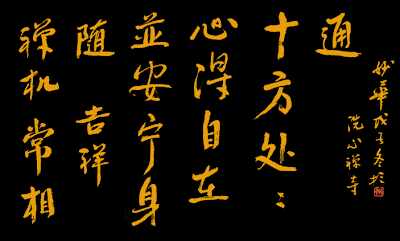 禅机常相
随 吉祥
並安宁身
心得自在
十方处々
通
妙華戊子冬於
洗心禅寺